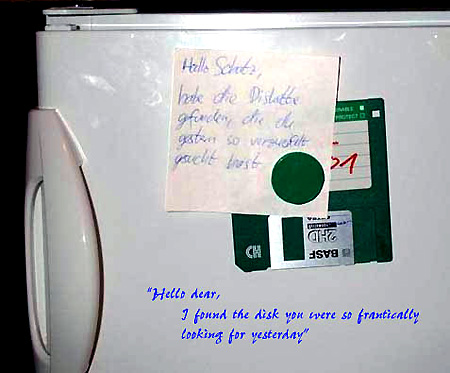 Hallo Schatz,
habe die Diskette
gefunden, die du
gestern so verzweifelt
gesucht hast.
ENABLE
PROTECT
HD
EXTRA
2HD
BASF
"Hello dear,
I found the disk you were so frantically
looking for yesterday"